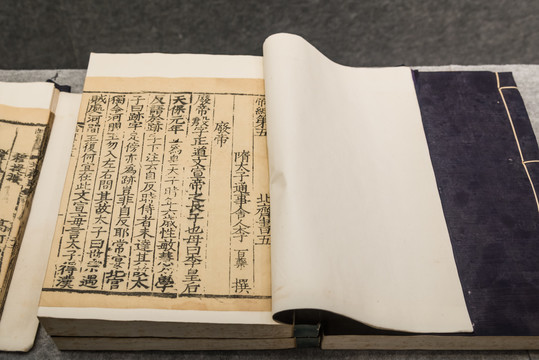 帝紀第五　北齊書五
隋太子通事舍人李百藥撰
廢帝
廢帝殷字正道文宣帝之長子也母曰李皇后
天保元年立爲皇太子時年六歲性敏慧初學
反語於跡字下注云自反時侍者未達其故太
子曰跡字足傍亦爲跡豈非自反耶常宴北宮
獨令河間王勿入左右問其故太子曰世宗遇
賊處河間王復何宜在此文宣每言太子得漢